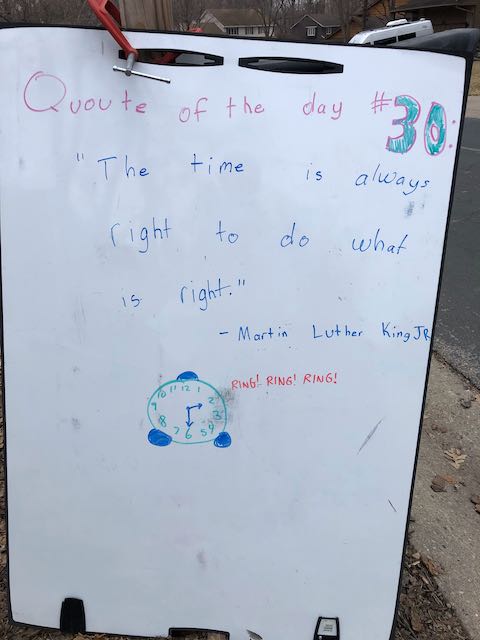 Quoute of the day #30:
"The time is always
right to do what
is right."
- Martin Luther King JR
RING! RING! RING!
10 11 12 1
9 2
8 3
7 6 5 4